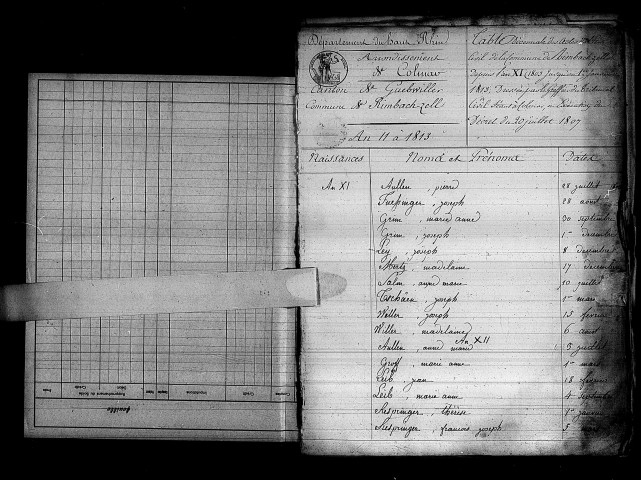 Département du Haut Rhin
Arrondissement
de Colmar
Canton de Guebwiller
Commune de Rimbachzell
An 11 à 1813
Table Décennale des Actes
Civil de la Commune de Rimbachzell
Depuis l'an XI (1803) jusqu'au 1er janvier
1813, Dressée par le greffier du tribunal
Civil séant à Colmar, en exécution du
Décret du 20 juillet 1807
Naissances Noms et Prénoms Dates
An XI Aullen, pierre 28 juillet
joseph 28 août
Grun, marie anne 30 septembre
Grun, joseph 1er décembre
Ley, joseph 8 décembre
Mertz, madelaine 17 décembre
Salm, anne marie 10 juillet
Tschaen, joseph 1er mars
Weller, joseph 15 février
Willer, madelaine 6 août
An XII
Aullen, anne marie 3 juillet
Groff, marie anne 1er mars
Leib, jean 18 février
Leib, marie anne 4 septembre
Respringer, thérèse 1er janvier
Respringer, francois joseph 5 mars